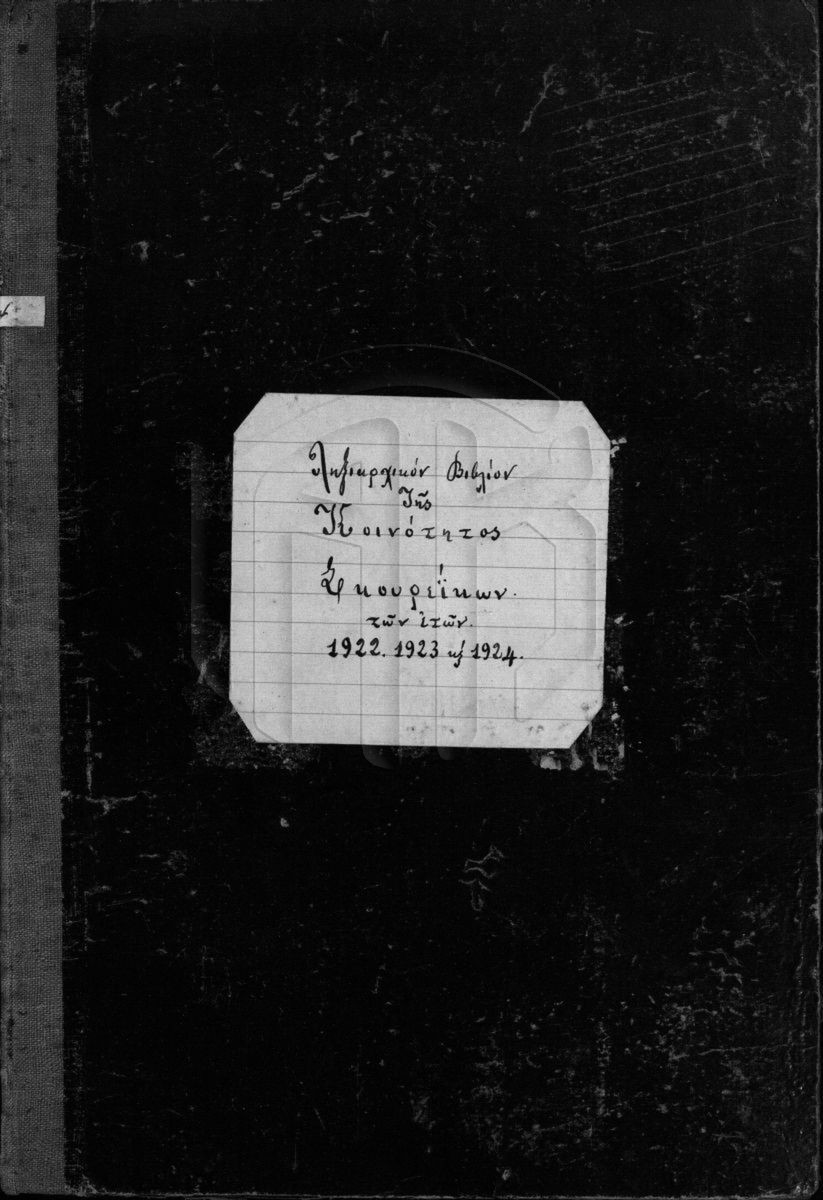 Ληξιαρχικόν Βιβλίον
Τῆς
Κοινότητος
Σκουρεΐκων.
τῶν ἐτῶν.
1922. 1923 κ' 1924.